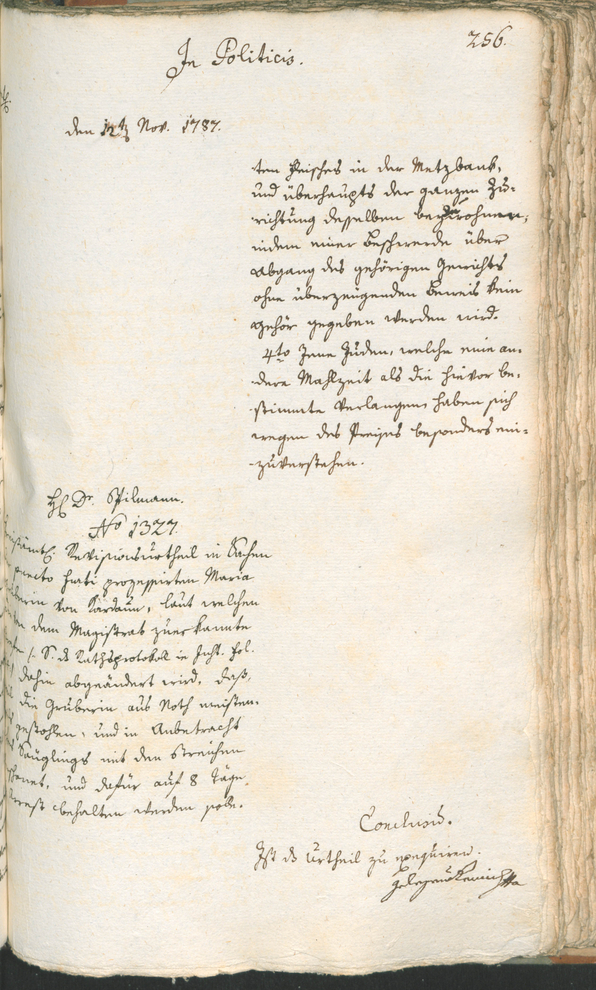 256.
In Politicis.
den 12t Nov. 1787.
ten Fleisches in der Metzbank,
und überhaupts der ganzen Zu-
richtung desselben
indem einer Beschwerde über
Abgang des gehörigen Gewichts
ohne überzeugenden Beweis kein
gehör gegeben werden wird.
4to Jene Juden, welche eine an-
dere Mahlzeit als die hievor be-
stimmte verlangen, haben sich
wegen des Preises besonders ein-
zuverstehen.
H Dr. Spilmann.
No 1327.
Revisionsurtheil in Sachen
puncto furti prozessirten Maria
von Kardaun, laut welchen
dem Magistrat zuerkannte
S. ds Rathsprotokol in Just. fol.
dahin abgeändert wird, daß,
die Gruberin aus Noth meisten-
gestohlen, und in Anbetracht
Säuglings mit den Streichen
und dafür auf 8 Täge
Arrest behalten werden solle.
Conclusum.
Ist ds Urtheil zu exequiren.